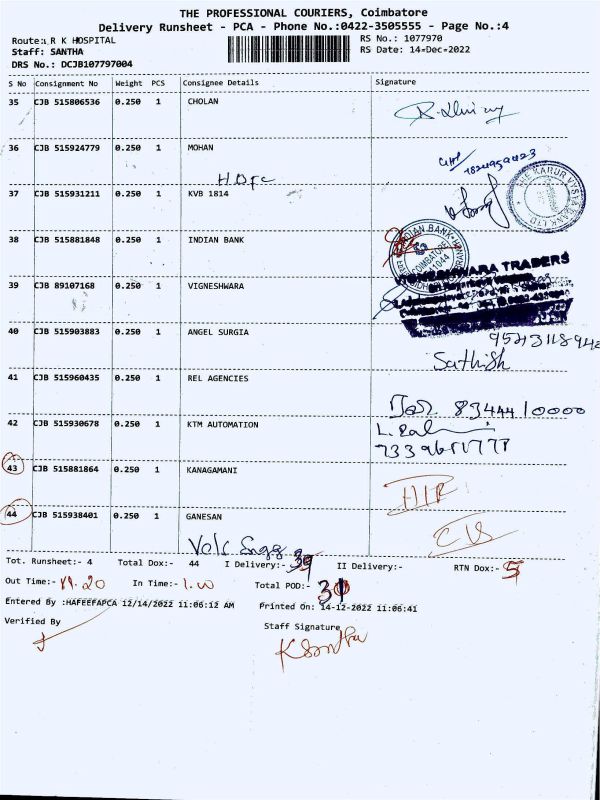 THE PROFESSIONAL COURIERS, Coimbatore
Delivery Runsheet - PCA - Phone No.:0422-3505555 - Page No.:4
Route: R K HOSPITAL
RS No.: 1077970
Staff: SANTHA
RS Date: 14-Dec-2022
DRS No.: DCJB107797004
S No Consignment No Weight PCS Consignee Details Signature
35 CJB 515806536 0.250 1 CHOLAN
36 CJB 515924779 0.250 1 MOHAN
HDFC
37 CJB 515931211 0.250 1 KVB 1814
THE KARUR VYSYA BANK LTD
38 CJB 515881848 0.250 1 INDIAN BANK
INDIAN BANK
COIMBATORE
1044
VIGNESHWARA TRADERS
39 CJB 89107168 0.250 1 VIGNESHWARA
40 CJB 515903883 0.250 1 ANGEL SURGIA
Sathish
41 CJB 515960435 0.250 1 REL AGENCIES
8344410000
42 CJB 515930678 0.250 1 KTM AUTOMATION
43 CJB 515881864 0.250 1 KANAGAMANI
44 CJB 515938401 0.250 1 GANESAN
Tot. Runsheet:- 4 Total Dox:- 44 I Delivery:- 39 II Delivery:- RTN Dox:- 5
Out Time:- 11.20 In Time:- 1.00 Total POD:- 31
Entered By :HAFEEFAPCA 12/14/2022 11:06:12 AM Printed On: 14-12-2022 11:06:41
Verified By
Staff Signature
K Santha